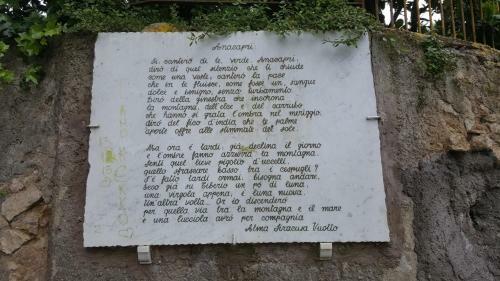 Anacapri
Io canterò di te, verde Anacapri,
dirò di quel silenzio che ti chiude
come una veste, canterò la pace
che in te fluisce, come fosse un sangue
dolce e benigno, senza turbamento.
Dirò della ginestra che incorona
la montagna, dell'elce e del carrubo
che hanno sì grata l'ombra nel meriggio,
dirò del fico d'india che le palme
aperte offre alle stimmate del sole.
Ma ora è tardi, già declina il giorno
e l'ombre fanno azzurra la montagna.
Senti quel lieve pigolio d'uccelli,
quello frascare basso tra i cespugli?
S'è fatto tardi ormai, bisogna andare,
seco già su Tiberio un pò di luna,
una virgola appena, è luna nuova.
Un'altra volta... Or io discenderò
per quella via tra la montagna e il mare
e una lucciola avrò per compagnia
Alma Siracusa Vuotto